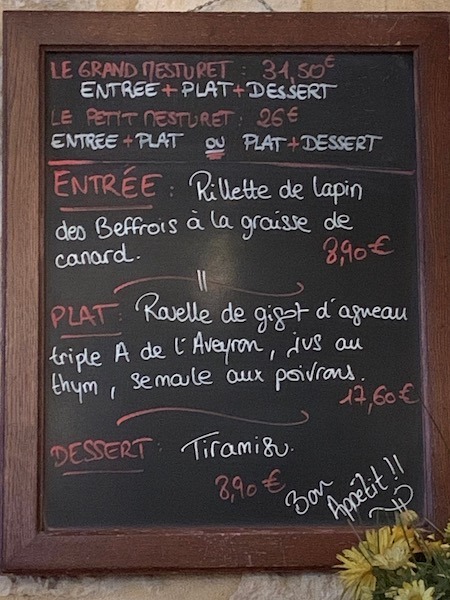 LE GRAND MESTURET : 31,50€
ENTREE + PLAT + DESSERT
LE PETIT MESTURET : 26€
ENTREE + PLAT OU PLAT + DESSERT
ENTRÉE : Rillette de lapin
des Beffrois à la graisse de
canard. 8,90€
PLAT : Rouelle de gigot d'agneau
triple A de l'Aveyron, jus au
thym, semoule aux poivrons.
17,60€
DESSERT : Tiramisu.
8,90€
Bon
Appétit !!